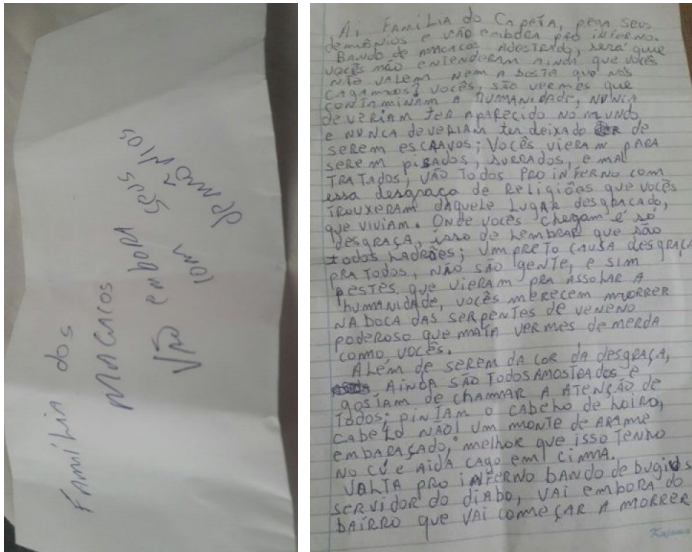 Família dos
macacos
Vão embora
com seus
demônios
Aí Família do Capeta, pega seus
demônios e vão embora pro inferno.
Bando de macacos adestrado, será que
vocês não entenderam ainda que vocês
não valem nem a bosta que nós
cagamos? Vocês, são vermes que
contaminam a humanidade, nunca
deveriam ter aparecido no mundo
e nunca deveriam ter deixado de
serem escravos; Vocês vieram para
serem pisados, surrados, e mal
tratados, vão todos pro inferno com
essa desgraça de religiões que vocês
trouxeram daquele lugar desgraçado,
que viviam. Onde vocês chegam é só
desgraça, isso de lembrar que são
todos ladrões; um preto causa desgraça
pra todos, não são gente, e sim
pestes que vieram pra assolar a
humanidade, vocês merecem morrer
na boca das serpentes de veneno
poderoso que mata vermes de merda
como vocês.
Além de serem da cor da desgraça,
ainda são todos amostrados e
gostam de chamar a atenção de
todos; pintam o cabelo de loiro,
cabelo não! um monte de arame
embaraçado, melhor que isso tenho
no cú e aida cago em cimma.
Volta pro inferno bando de bugios
servidor do diabo, vai embora do
bairro que vai começar a morrer